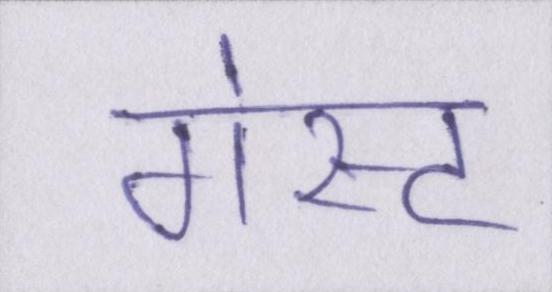 गेस्ट